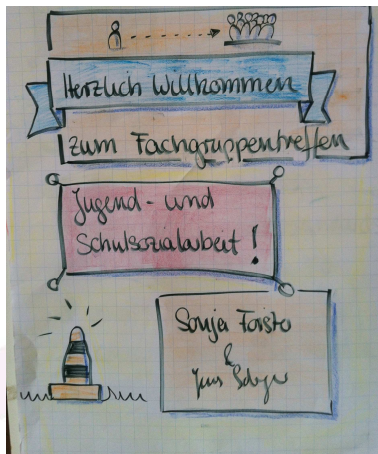 Herzlich Willkommen
zum Fachgruppentreffen
Jugend- und
Schulsozialarbeit!
Sonja
&
Jens